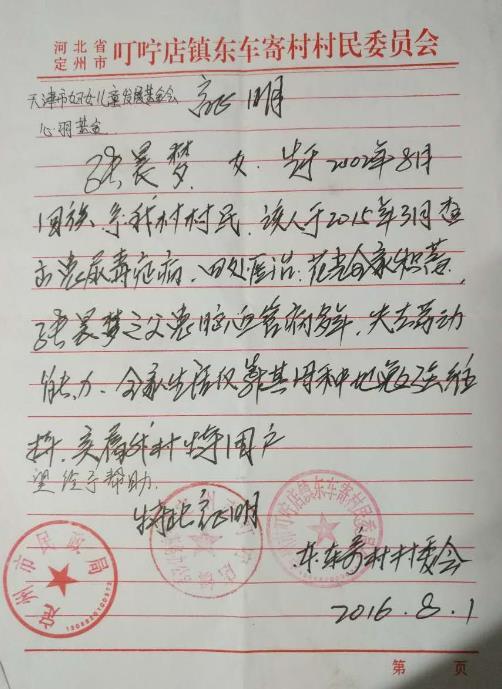 河北省
定州市 叮咛店镇东车寄村村民委员会
天津市妇女儿童发展基金会 证明
心羽基金
张晨梦，女，生于2002年8月
回族，系我村村民，该人于2015年3月查
出患尿毒症病，四处医治，花光全家积蓄，
张晨梦之父患脑血管病多年，失去劳动
能力，全家生活仅靠其母种地勉强维
持，实属我村特困户
望给予帮助.
特此证明
东车寄村村委会
2016.8.1
定州市民政局
叮咛店镇东车寄村村民委员会
第 页